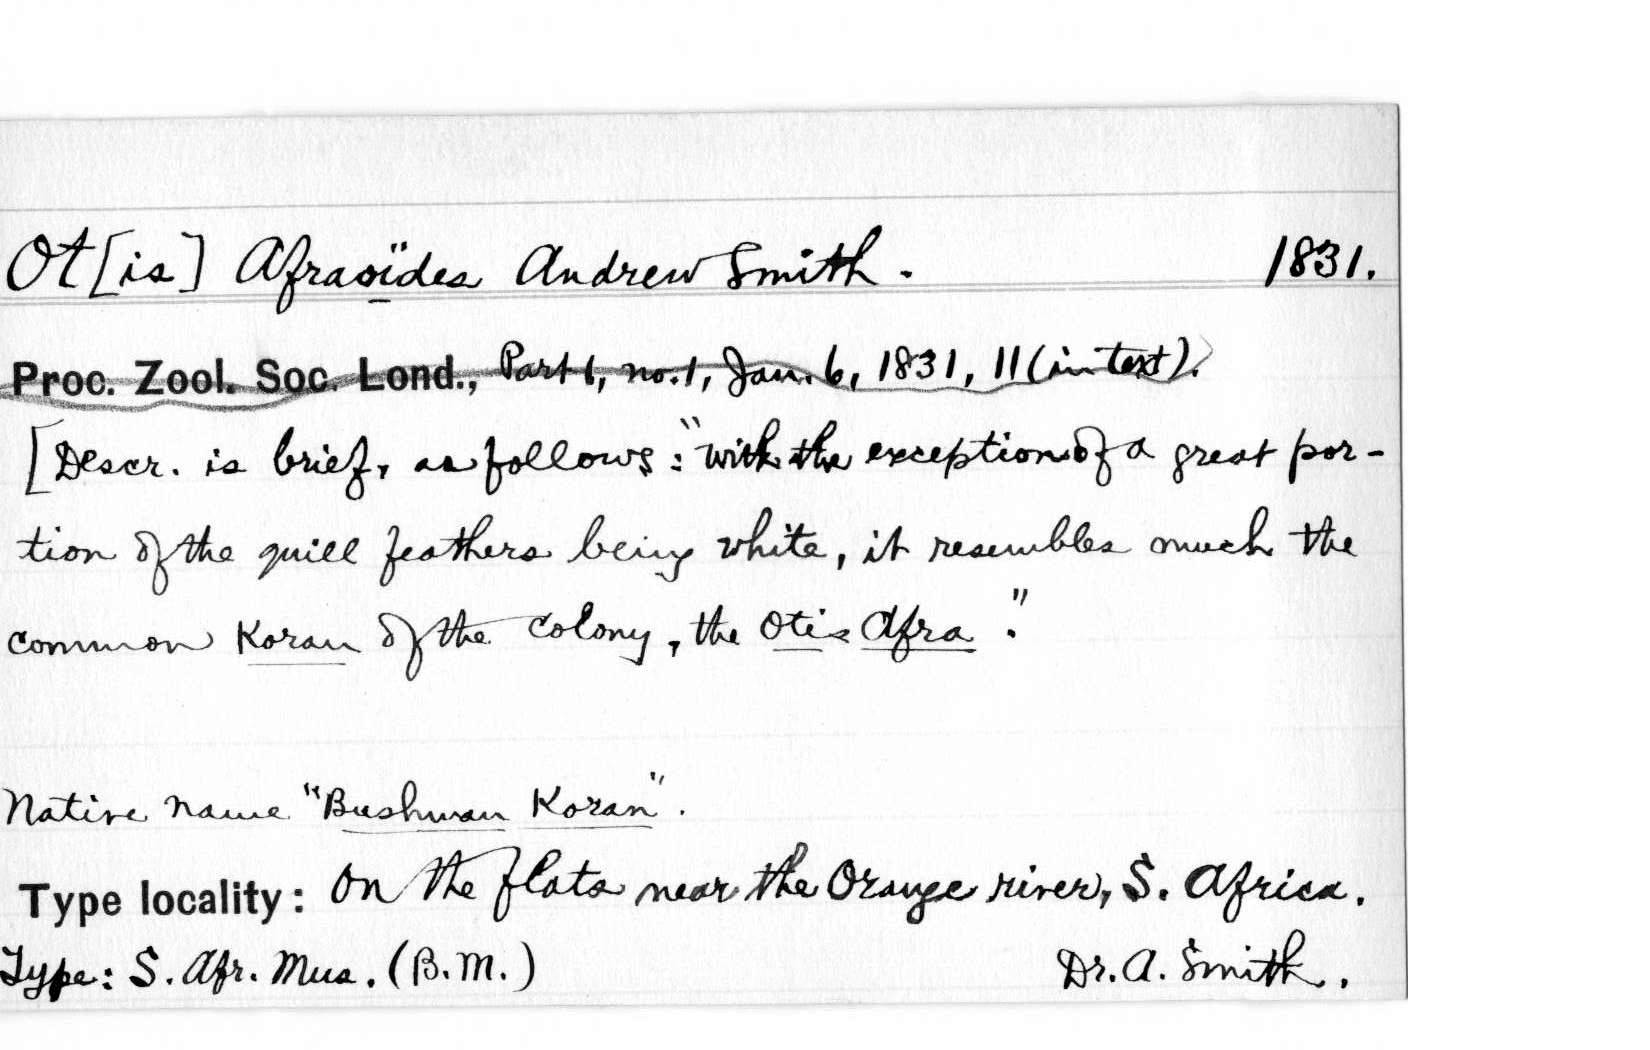 Ot[is] Afraoïdes Andrew Smith. 1831.
Proc. Zool. Soc. Lond., Part 1, no. 1, Jan. 6, 1831, 11 (in text).
[Descr. is brief, as follows: "with the exception of a great por-
tion of the quill feathers being white, it resembles much the
common Koran of the colony, the Otis Afra."
Native name "Bushman Koran".
Type locality: On the flats near the Orange river, S. Africa.
Type: S. Afr. Mus. (B.M.) Dr. A. Smith.